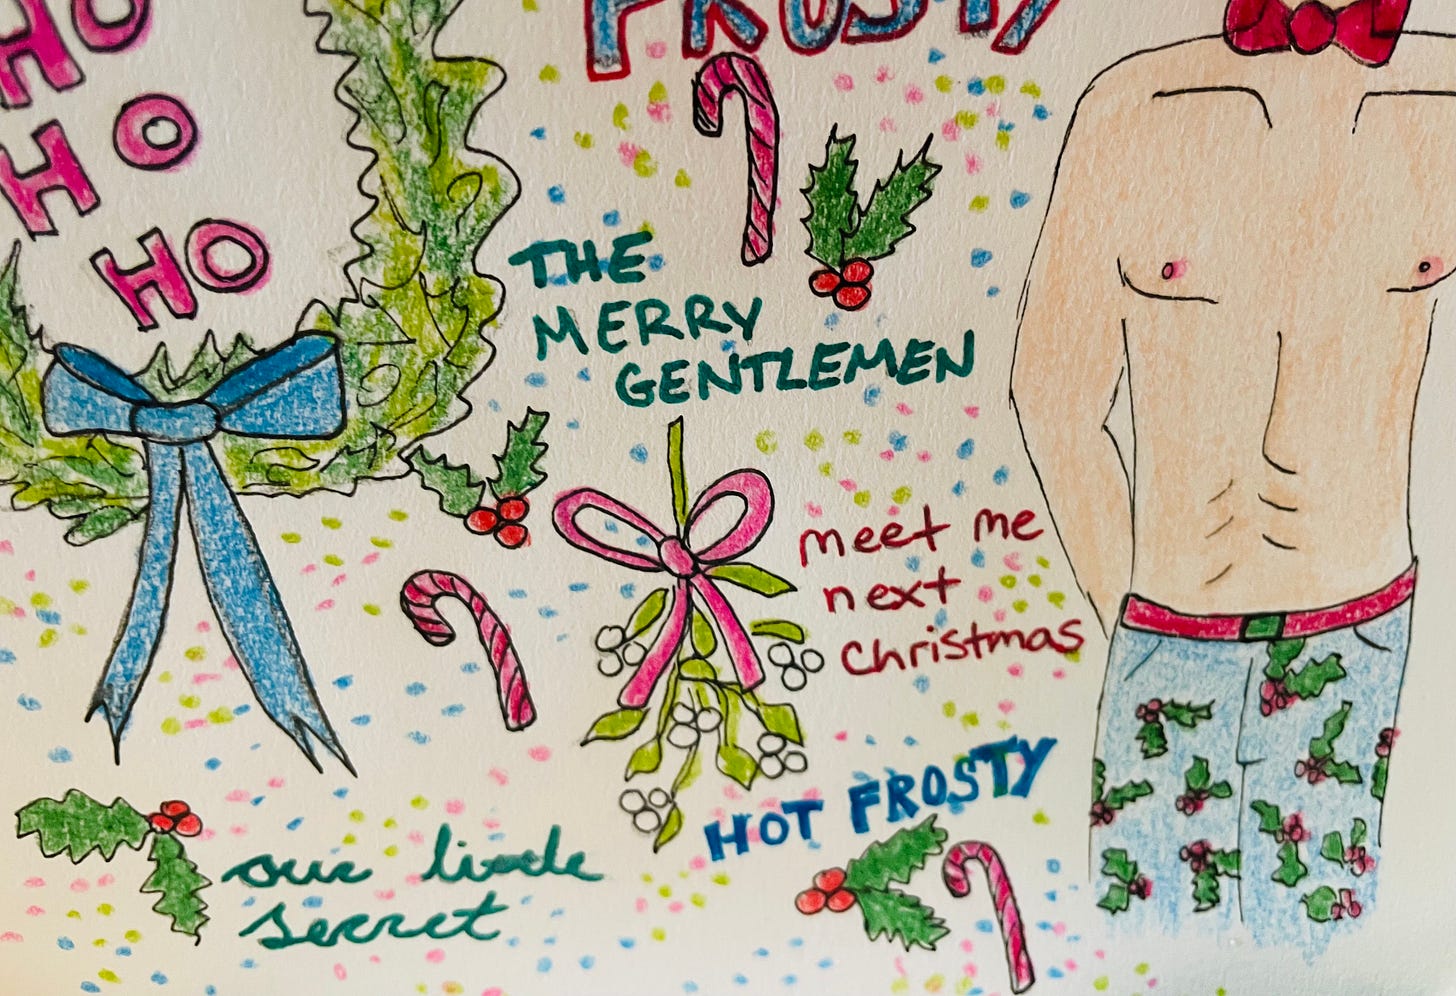 HO
HO
HO
FROSTY
THE
MERRY
GENTLEMEN
meet me
next
Christmas
HOT FROSTY
our little
secret